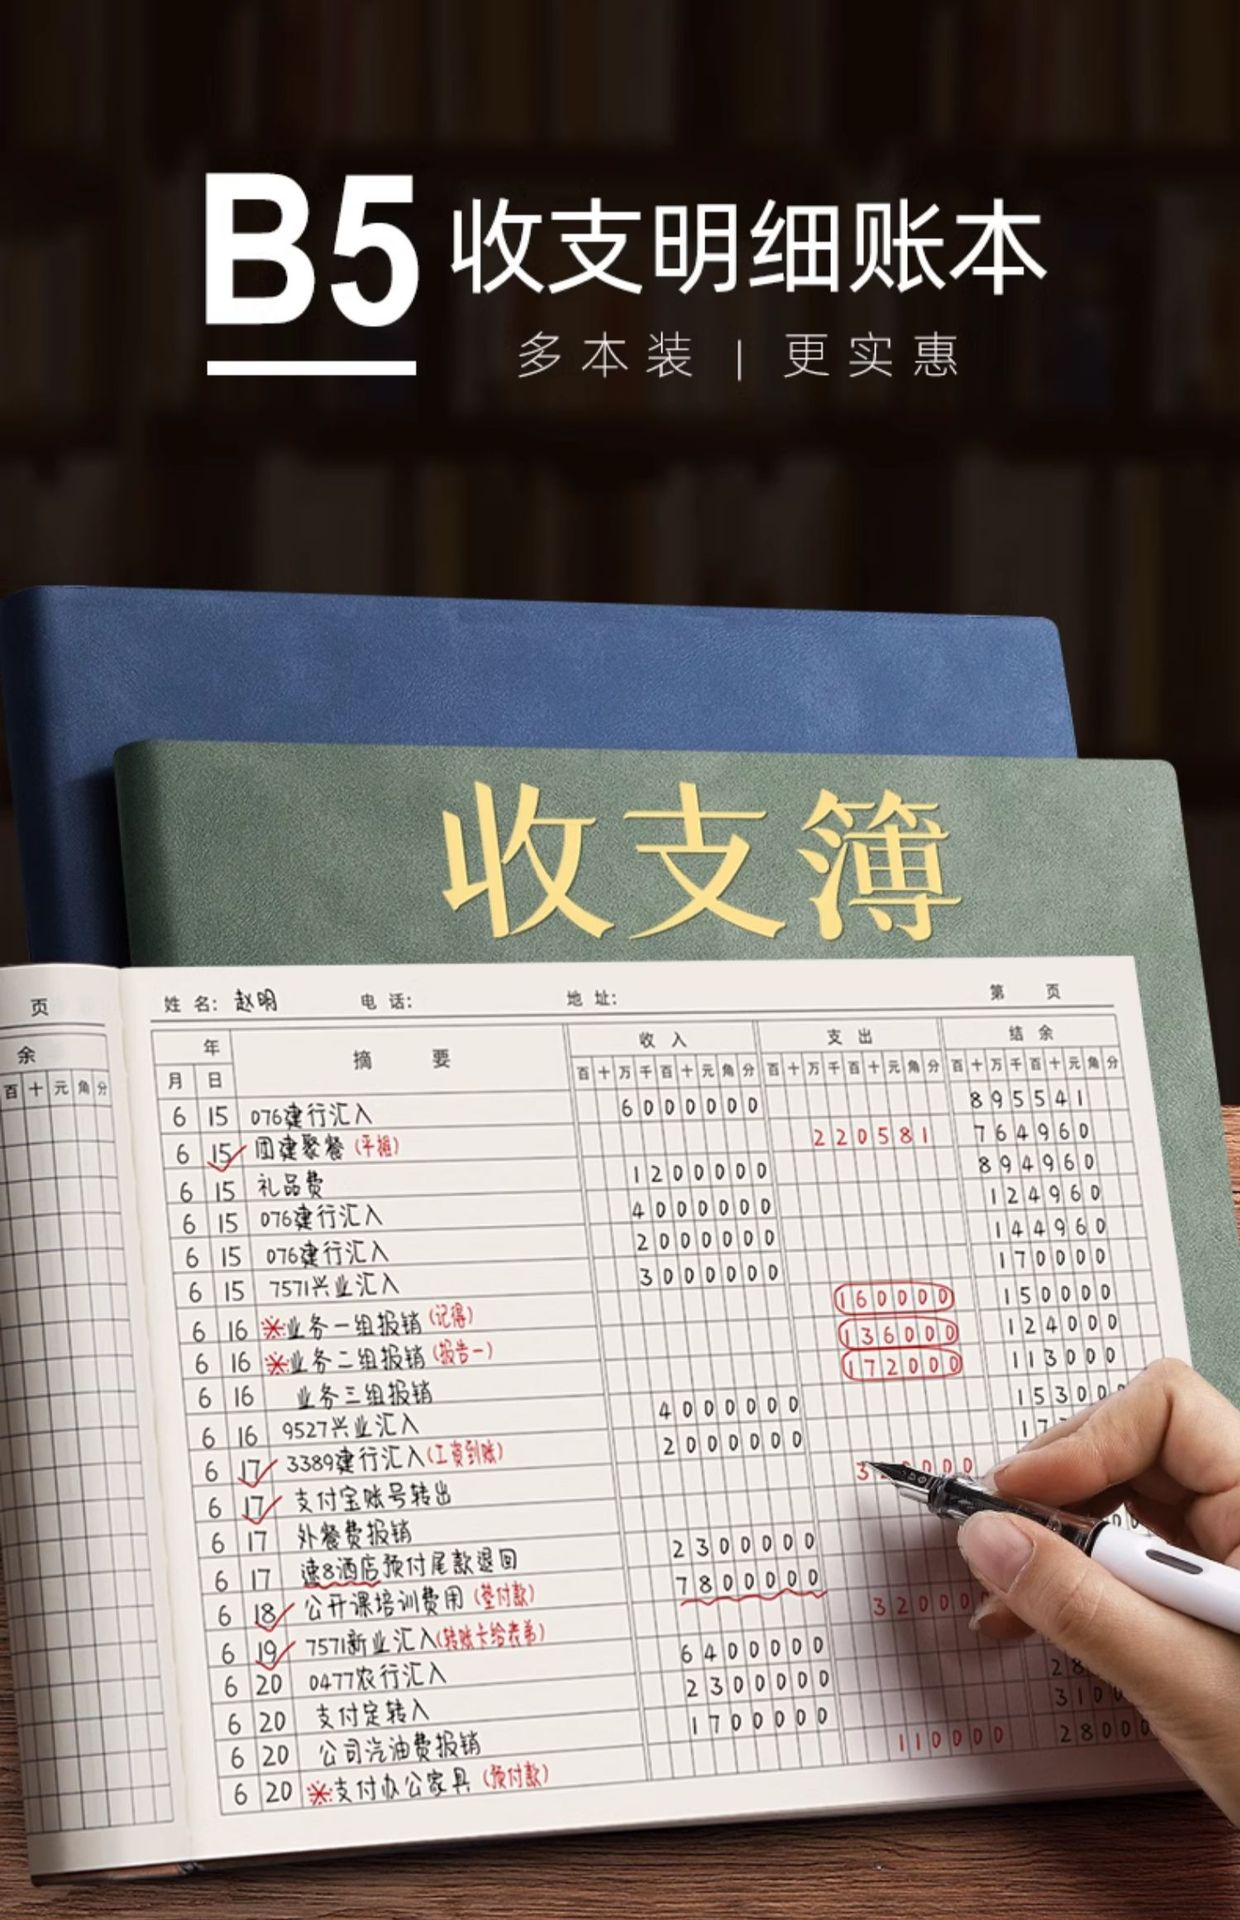 B5 收支明细账本
多本装 | 更实惠
收支簿
页
余
百 十 元 角 分
姓名: 赵明 电话: 地址: 第 页
年 摘 要 收 入 支 出 结 余
月 日 百 十 万 千 百 十 元 角 分 百 十 万 千 百 十 元 角 分 百 十 万 千 百 十 元 角 分
6 15 076建行汇入 6000000 895541
6 15 团建聚餐 (平摊) 220581 764960
6 15 礼品费 1200000 894960
6 15 076建行汇入 4000000 124960
6 15 076建行汇入 2000000 144960
6 15 7571兴业汇入 3000000 170000
6 16 ※业务一组报销 (记得) 160000 150000
6 16 ※业务二组报销 (报告一) 136000 124000
6 16 业务三组报销 172000 113000
6 16 9527兴业汇入 4000000 15300
6 17 3389建行汇入 (工资到账) 2000000
6 17 支付宝账号转出
6 17 外餐费报销
6 17 速8酒店预付尾款退回 2300000
6 18 公开课培训费用 (垫付款) 7800000
6 19 7571新业汇入 (转账卡给表弟) 32000
6 20 0477农行汇入 6400000
6 20 支付定转入 2300000
6 20 公司汽油费报销 1700000
6 20 ※支付办公家具 (预付款) 110000 28000